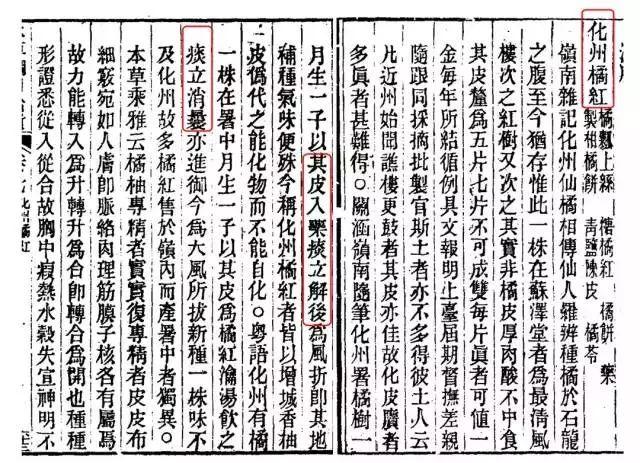 化州橘紅 橘瓤上絲 橘紅 橘餅 藥
製柑橘餅 青鹽陳皮 橘苓
嶺南雜記化州仙橘相傳仙人羅辨種橘於石龍
之腹至今猶存惟此一株在蘇澤堂者為最清風
樓次之紅樹又次之其實非橘皮厚肉酸不中食
其皮釐為五片七片不可成雙每片眞者可値一
金每年所結循例具文報明上臺屆期督撫差親
隨跟同採摘批製官斯土者亦不多得彼土人云
凡近州始聞譙樓更鼓者其皮亦佳故化皮贋者
多眞者甚難得。關涵嶺南隨筆化州署橘樹一
月生一子以其皮入藥痰立解後為風折即其地
補種氣味便殊今稱化州橘紅者皆以增城香柚
皮偽代之能化物而不能自化。粵語化州有橘
一株在署中月生一子以其皮為橘紅瀹湯飲之
痰立消曩亦進御今為大風所拔新種一株味不
及化州故多橘紅售於嶺內而產署中者獨異。
本草乘雅云橘柚專精者實實復專精者皮皮布
細竅宛如人膚即脈絡肉理筋膜子核各有屬焉
故力能轉入為升轉升為合即轉合為開也種種
形證悉從入從合故胸中瘕熱水穀失宣神明不